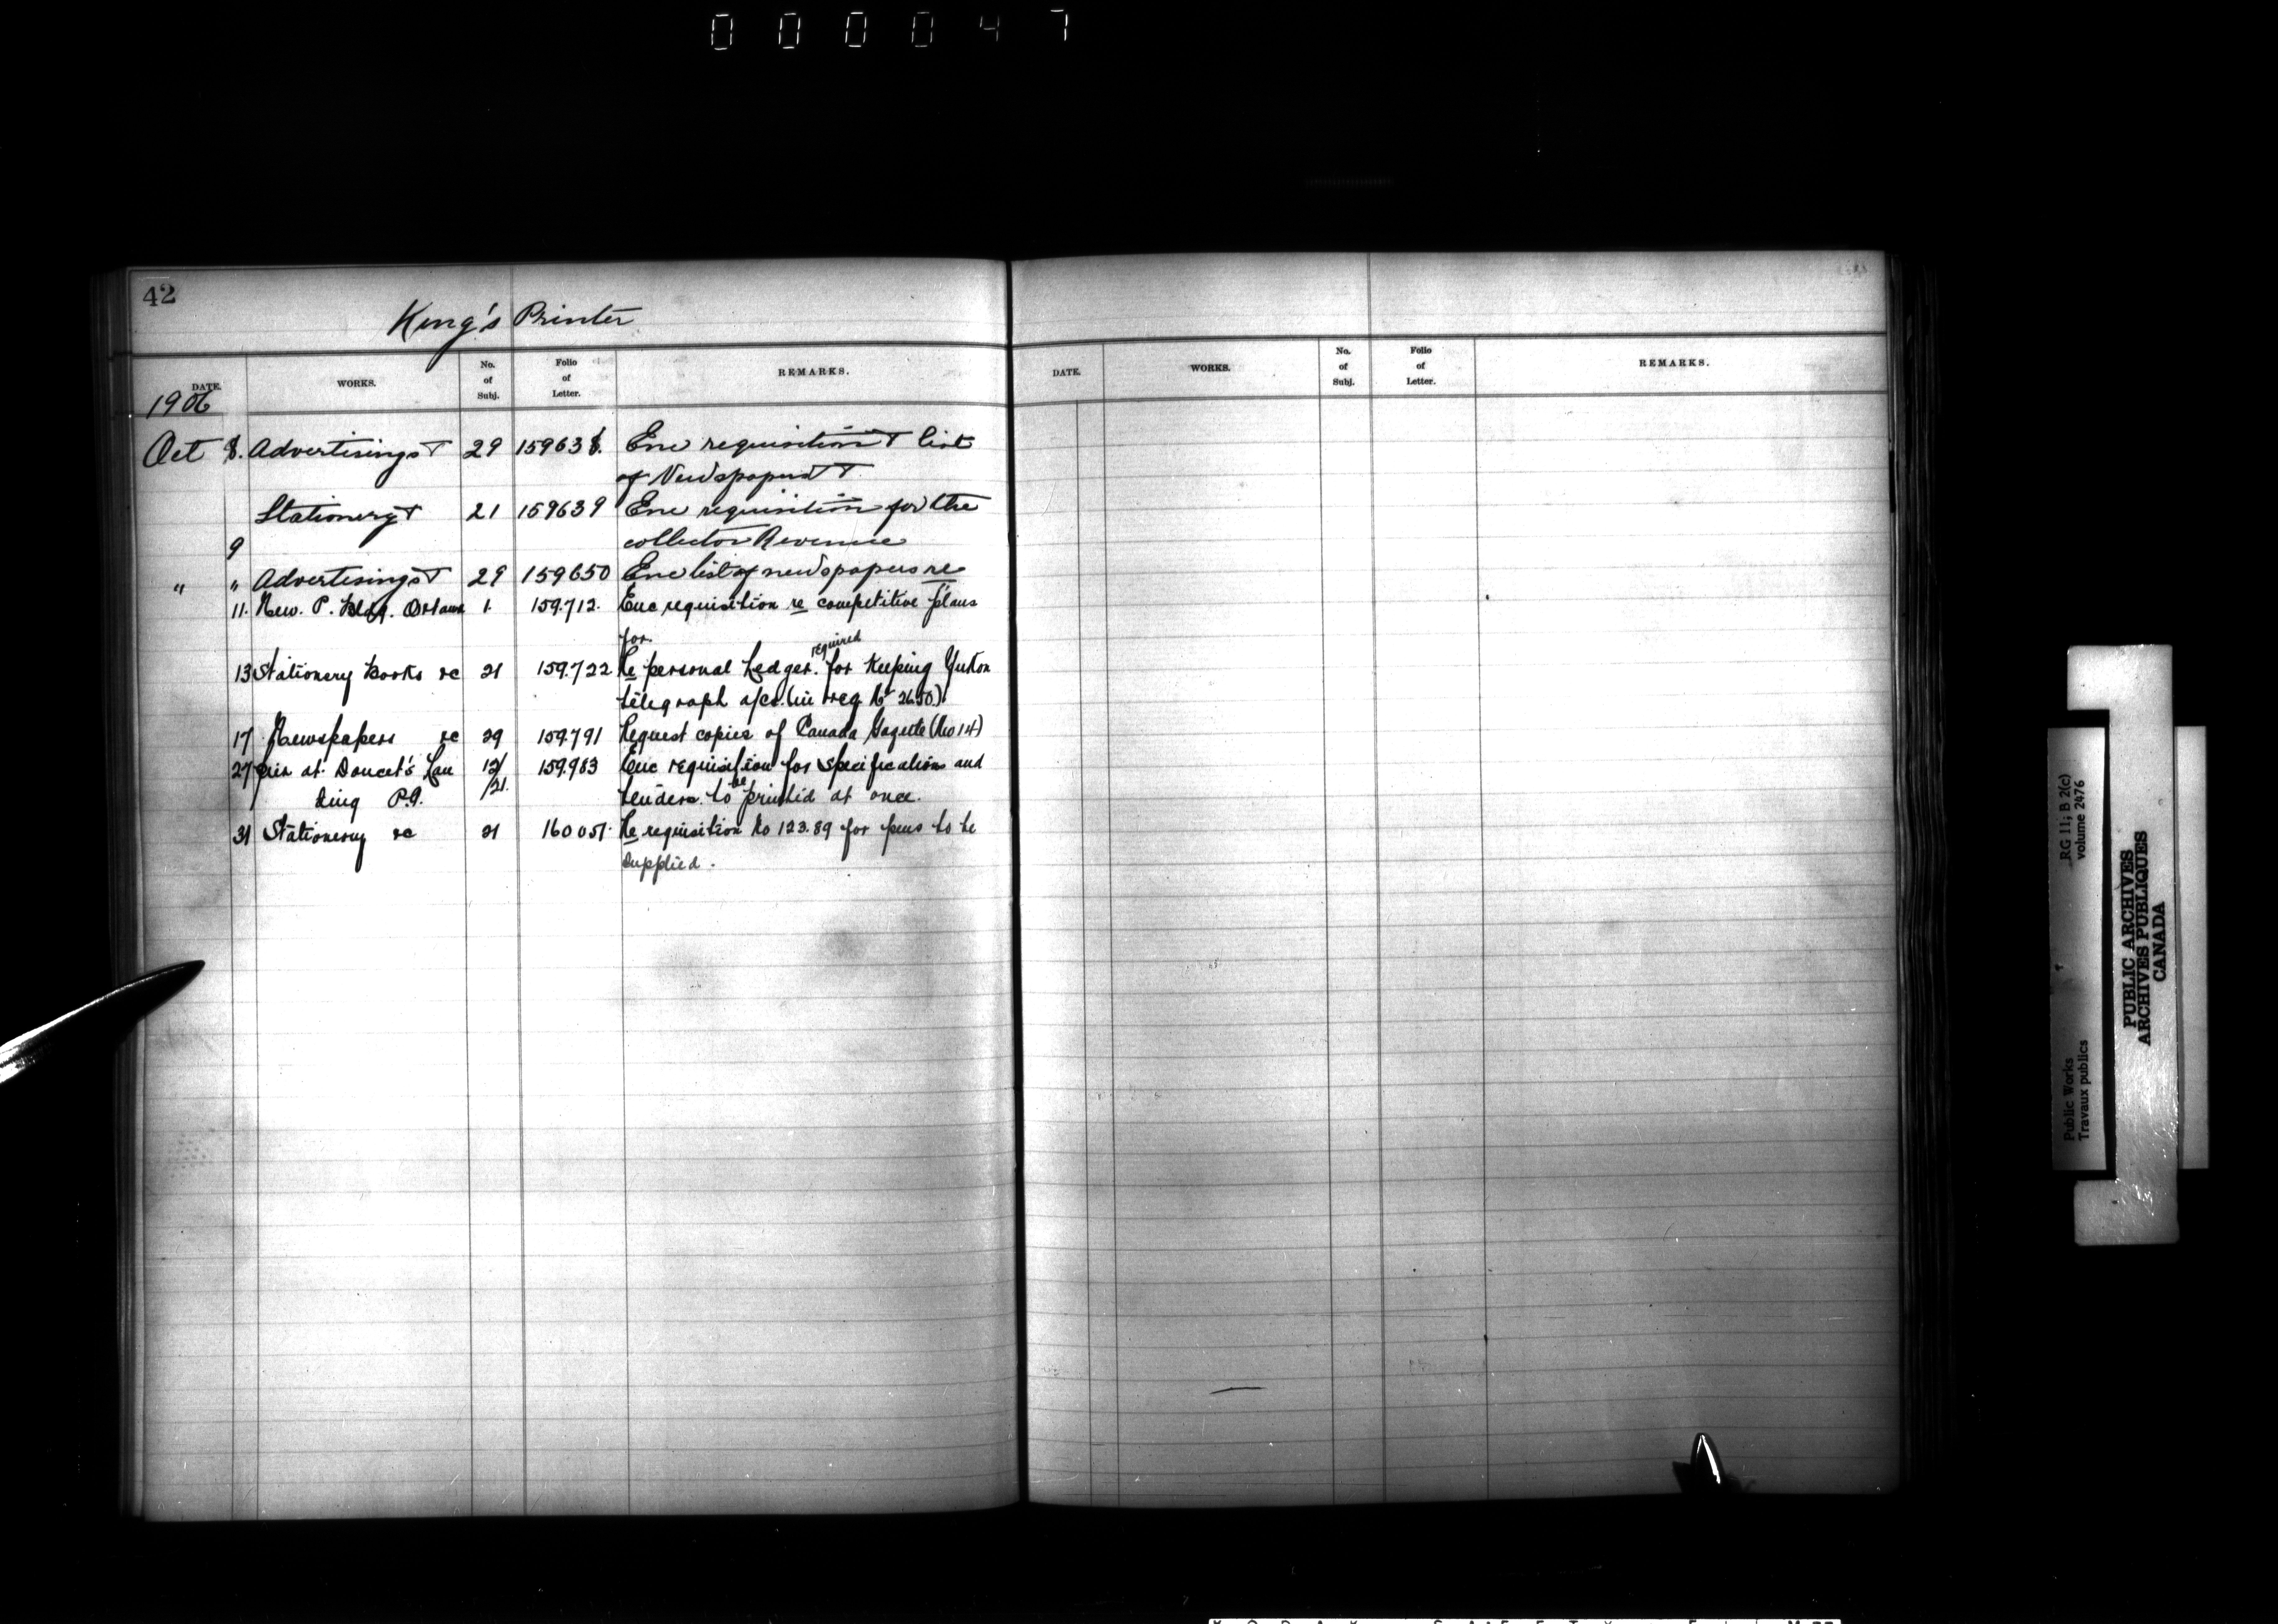 000047
42
King's Printer
DATE. WORKS. No. of Subj. Folio of Letter. REMARKS.
DATE. WORKS. No. of Subj. Folio of Letter. REMARKS.
1906
Oct 8. Advertising &c 29 159638. Enc requisition & list
of Newspapers &c
Stationery &c 21 159639 Enc requisition for the
9 collector Revenue
" " Advertising &c 29 159650 Enc list of newspapers re
11. New. P. Bldg. Ottawa 1. 159.712. Enc requisition re competitive plans
for.
13 Stationery Books &c 21 159.722 Re personal Ledger. required for keeping Yukon
telegraph a/cs. (in req No 2650).
17 Newspapers &c 29 159.791 Request copies of Canada Gazette (No 14)
27 Pier at Doucet's Lan 12/ 159.983 Enc requisition for specifications and
ding P.Q. /21. tenders to be printed at once.
31 Stationery &c 21 160051. Re requisition No 123.89 for pens to be
supplied.
Public Works RG 11; B 2(c)
Travaux publics volume 2476
PUBLIC ARCHIVES
ARCHIVES PUBLIQUES
CANADA